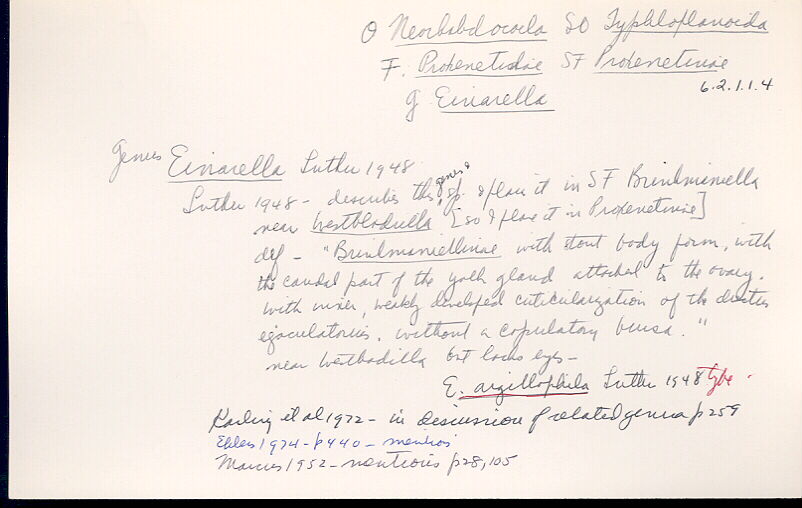 O Neorhabdocoela SO Typhloplanoida
F. Proxenetidae SF Proxenetinae
6.2.1.1.4
g Einarella
Genus Einarella Luther 1948
Luther 1948 - describes this genus & sp. & place it in SF Brinkmaniella
near Westbladiella [so I place it in Proxenetinae]
def - "Brinkmaniellinae with stout body form, with
the caudal part of the yolk gland attached to the ovary.
with inner, weakly developed cuticularization of the ductus
ejaculatorius. without a copulatory bursa."
near Westbadilla but lacks eyes -
E. argillophila Luther 1948 type.
Karling et al 1972 - in discussion of related genera p 259
Ehlers 1974 - p 440 - mentions
Marcus 1952 - mentions p 28, 105